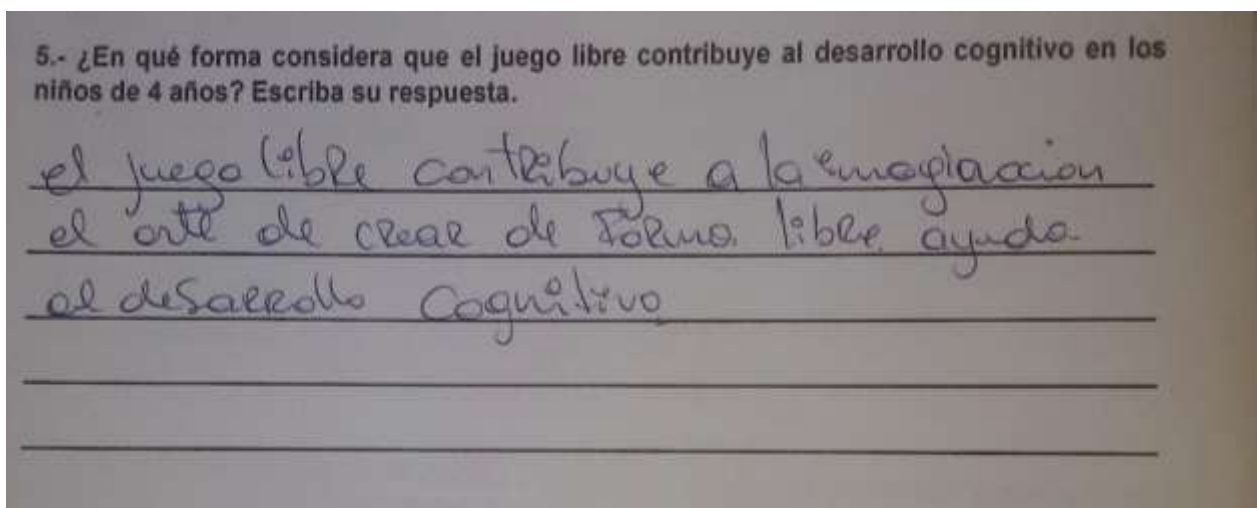 5.- ¿En qué forma considera que el juego libre contribuye al desarrollo cognitivo en los
niños de 4 años? Escriba su respuesta.
el juego libre contribuye a la emagiaccion
el arte de crear de forma libre ayuda
al desarrollo cognitivo